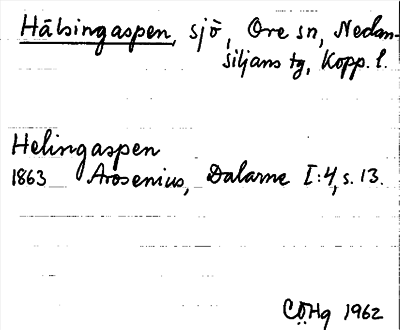 Hälsingaspen, sjö, Ore sn, Nedan-
siljans tg, Kopp. l.
Helingaspen
1863 Arosenius, Dalarne I:4, s. 13.
CÖHg 1962